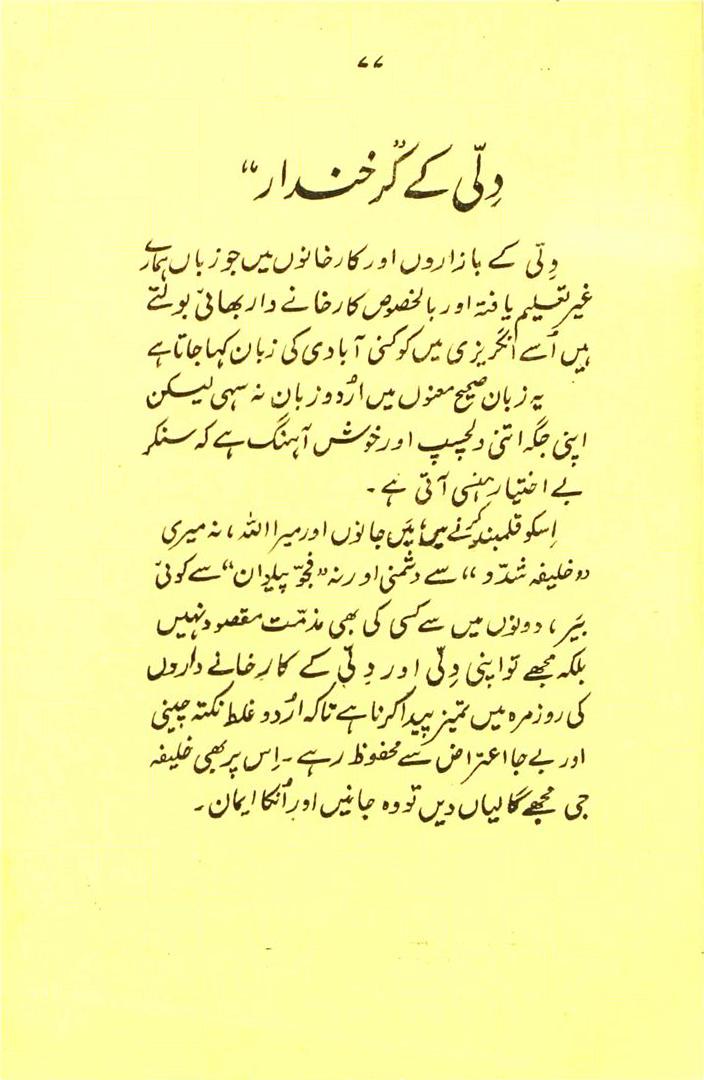 ۷۷
دِلّی کے ”کَرخندار“
دِلّی کے بازاروں اور کارخانوں میں جو زباں ہمارے
غیر تعلیم یافتہ اور بالخصوص کارخانے دار بھائی بولتے
ہیں اُسے انگریزی میں کوکنی آبادی کی زبان کہا جاتا ہے
یہ زبان صحیح معنوں میں اُردو زبان نہ سہی لیکن
اپنی جگہ اتنی دلچسپ اور خوش آہنگ ہے کہ سنکر
بے اختیار ہنسی آتی ہے ۔
اِسکو قلمبند کرنے میں، مَیں جانوں اور میرا اللہ ، نہ میری
”خلیفہ شدّو“ سے دشمنی اور نہ ”فجوّ پہلوان“ سے کوئی
بیَر ، دونوں میں سے کسی کی بھی مذمّت مقصود نہیں
بلکہ مجھے تو اپنی دِلّی اور دِلّی کے کارخانے داروں
کی روزمرہ میں تمیز پیدا کرنا ہے تاکہ اُردو غلط نکتہ چینی
اور بے جا اعتراض سے محفوظ رہے ۔ اِس پر بھی خلیفہ
جی مجھے گالیاں دیں تو وہ جانیں اور اُنکا ایمان ۔